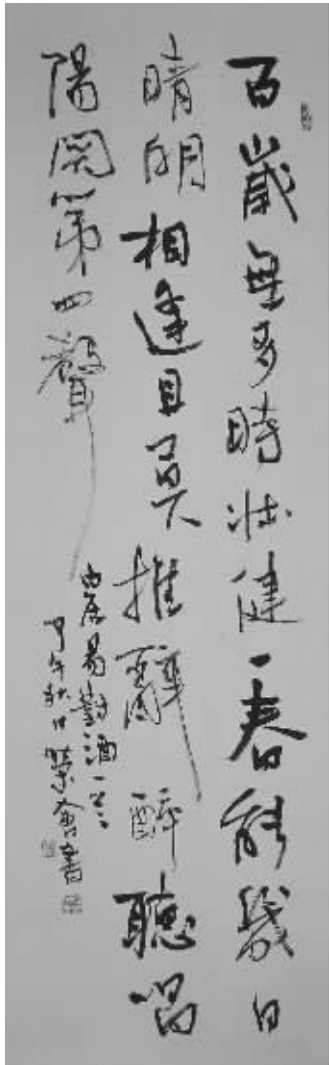 百歲無多時壯健一春能幾日
晴明相逢且莫推辭醉聽唱
陽關第四聲
白居易對酒一
甲午秋日榮會書